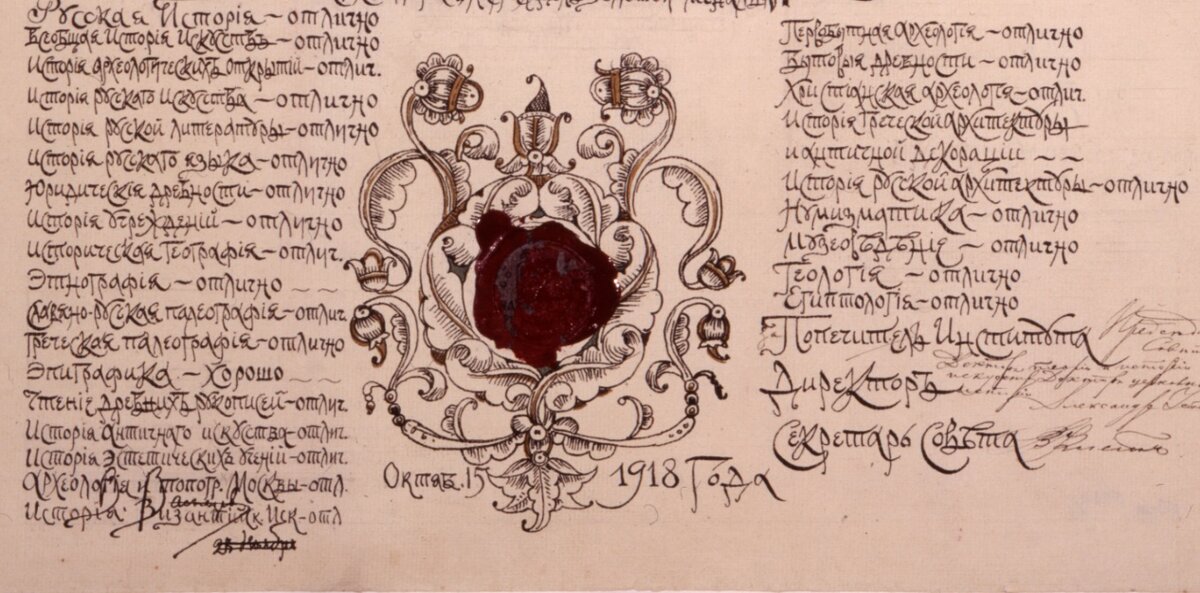 Русская Исторія – отлично
Всеобщая Исторія Искусствъ – отлично
Исторія археологическихъ открытій – отлич.
Исторія русскаго искусства – отлично
Исторія русской литературы – отлично
Исторія русскаго языка – отлично
Юридическія древности – отлично
Исторія учрежденій – отлично
Историческая Географія – отлич.
Этнографія – отлично
Славяно-русская палеографія – отлич.
Греческая палеографія – отлично
Эпиграфика – Хорошо
Чтеніе древнихъ рукописей – отлич.
Исторія античнаго искусства – отлич.
Исторія Эстетическихъ ученій – отлич.
Археологія и топогр. Москвы – отл.
Исторія Византійск. Иск – отл
Октяб. 15 1918 Года
Первобытная археологія – отлично
Бытовыя древности – отлично
Христіанская археологія – отлич.
Исторія Греческой архитектуры
и античной декораціи
Исторія русской архитектуры – отлично
Нумизматика – отлично
Музеовѣдѣніе – отлично
Геологія – отлично
Египтологія – отлично
Попечитель Института
Директоръ
Александръ
Секретарь Совѣта